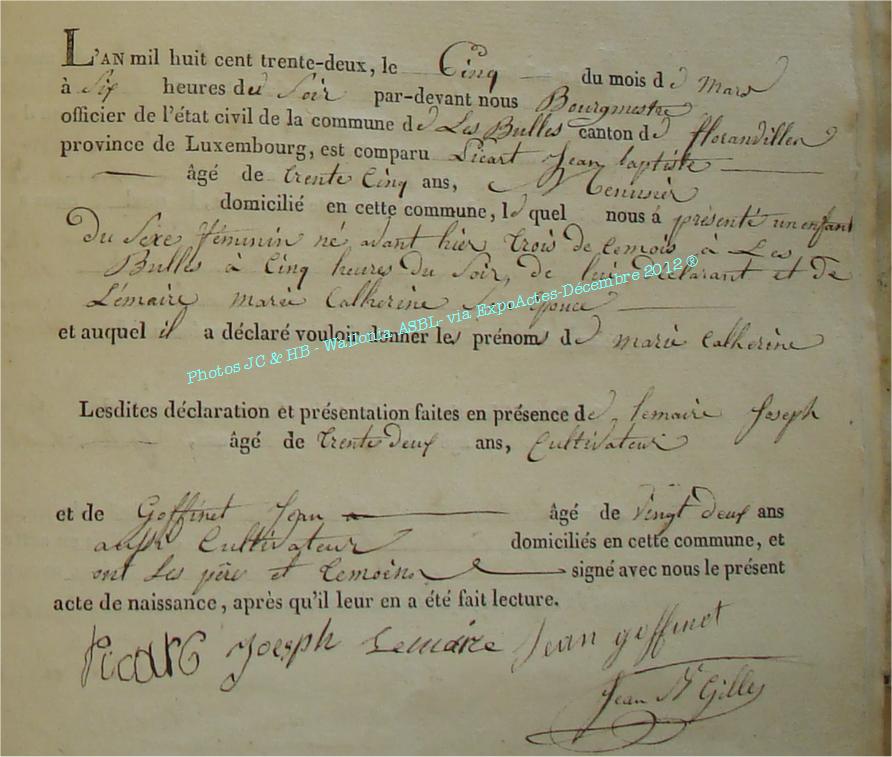 L'AN mil huit cent trente-deux, le Cinq du mois de Mars
à Six heures du Soir par-devant nous Bourgmestre
officier de l'état civil de la commune de Les Bulles canton de florandilles
province de Luxembourg, est comparu Picart Jean baptiste
âgé de trente Cinq ans, Menusier
domicilié en cette commune, le quel nous à présenté un enfant
Du Sexe féminin né avant hier trois de ce mois à Les
Bulles à Cinq heures du Soir, de lui Déclarant et de
Lémaire marie Catherine Son Epouce
et auquel il a déclaré vouloir donner les prénoms de marie Catherine
Photos JC & HB - Wallonia ASBL- via ExpoActes-Décembre 2012 ®
Lesdites déclaration et présentation faites en présence de lemaire Joseph
âgé de trente deux ans, Cultivateur
et de Goffinet Jean âgé de Vingt deux ans
aussi Cultivateur domiciliés en cette commune, et
ont Les père et temoins signé avec nous le présent
acte de naissance, après qu'il leur en a été fait lecture.
Picart Joesph Lemaire Jean goffinet
Jean Gilles